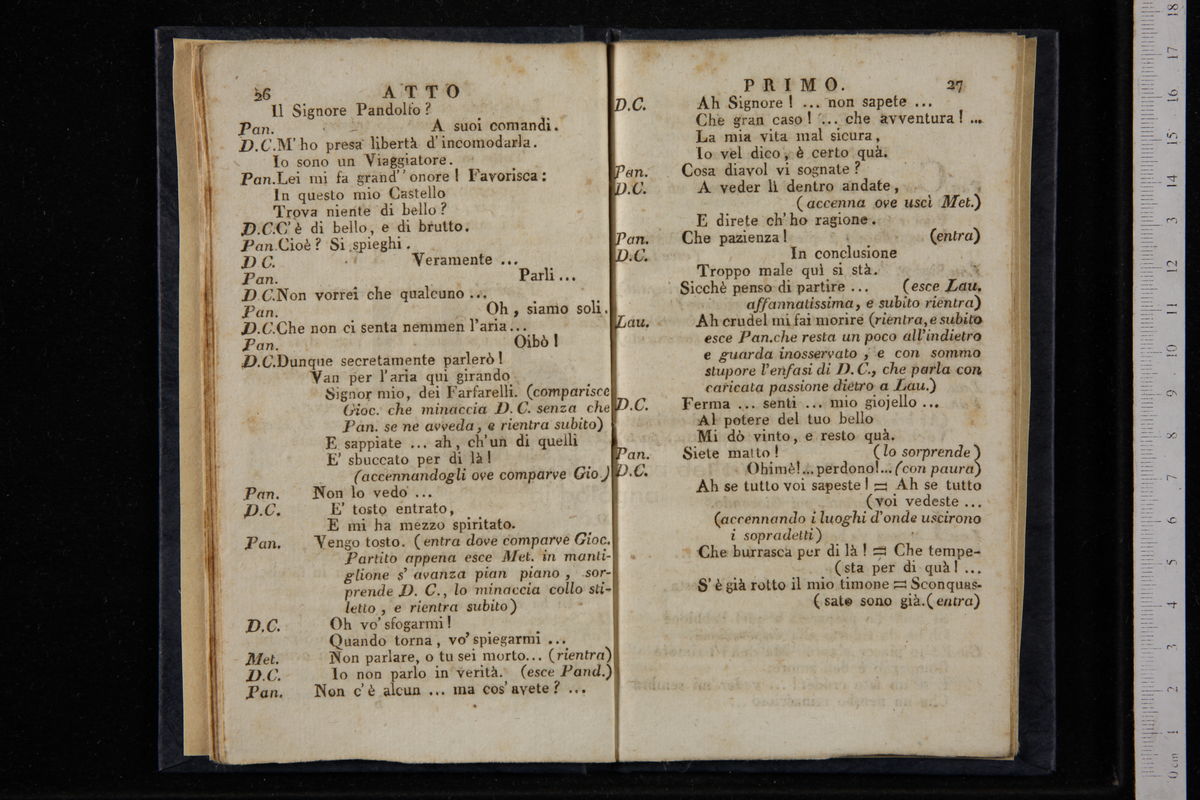 26 ATTO
Il Signore Pandolfo ?
Pan. A suoi comandi.
D.C. M' ho presa libertà d' incomodarla.
Io sono un Viaggiatore.
Pan. Lei mi fa grand' onore ! Favorisca :
In questo mio Castello
Trova niente di bello ?
D.C. C' è di bello, e di brutto.
Pan. Cioè ? Si spieghi.
D C. Veramente ...
Pan. Parli ...
D C. Non vorrei che qualcuno ...
Pan. Oh, siamo soli.
D.C. Che non ci senta nemmen l'aria ...
Pan. Oibò !
D.C. Dunque secretamente parlerò !
Van per l'aria qui girando
Signor mio, dei Farfarelli. (comparisce
Gioc. che minaccia D. C. senza che
Pan. se ne avveda, e rientra subito)
E sappiate ... ah, ch'un di quelli
E' sbuccato per di là !
(accennandogli ove comparve Gio.)
Pan. Non lo vedo ...
D.C. E' tosto entrato,
E mi ha mezzo spiritato.
Pan. Vengo tosto. (entra dove comparve Gioc.
Partito appena esce Met. in manti-
glione s' avanza pian piano, sor-
prende D. C., lo minaccia collo sti-
letto, e rientra subito)
D.C. Oh vo' sfogarmi !
Quando torna, vo' spiegarmi ...
Met. Non parlare, o tu sei morto... (rientra)
D.C. Io non parlo in verità. (esce Pand.)
Pan. Non c' è alcun ... ma cos' avete ? ...
PRIMO. 27
D.C. Ah Signore ! ... non sapete ...
Che gran caso ! ... che avventura ! ...
La mia vita mal sicura,
Io vel dico, è certo quà.
Pan. Cosa diavol vi sognate ?
D.C. A veder lì dentro andate,
(accenna ove uscì Met.)
E direte ch' ho ragione.
Pan. Che pazienza ! (entra)
D.C. In conclusione
Troppo male quì si stà.
Sicchè penso di partire ... (esce Lau.
affannatissima, e subito rientra)
Lau. Ah crudel mi fai morire (rientra, e subito
esce Pan. che resta un poco all'indietro
e guarda inosservato, e con sommo
stupore l'enfasi di D. C., che parla con
caricata passione dietro a Lau.)
D.C. Ferma ... senti ... mio giojello ...
Al potere del tuo bello
Mi dò vinto, e resto quà.
Pan. Siete matto ! (lo sorprende)
D.C. Ohimè!... perdono!... (con paura)
Ah se tutto voi sapeste ! = Ah se tutto
(voi vedeste ...
(accennando i luoghi d'onde uscirono
i sopradetti)
Che burrasca per di là ! = Che tempe-
(sta per di quà ! ...
S' è già rotto il mio timone = Sconquas-
(sato sono già. (entra)